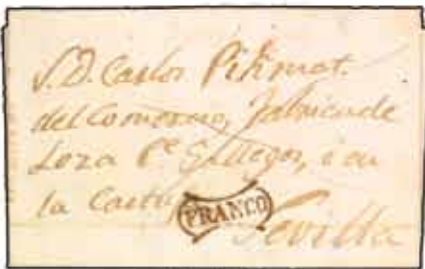 S. D. Carlos Pikmat.
del Comercio, Fabrica de
Loza C.e Gallegos, i en
la Cartuja
FRANCO
Sevilla